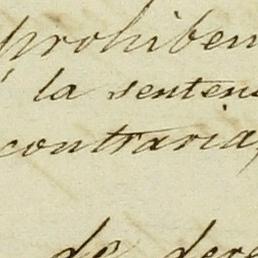 prohiben
la senten
contraria,
de dere